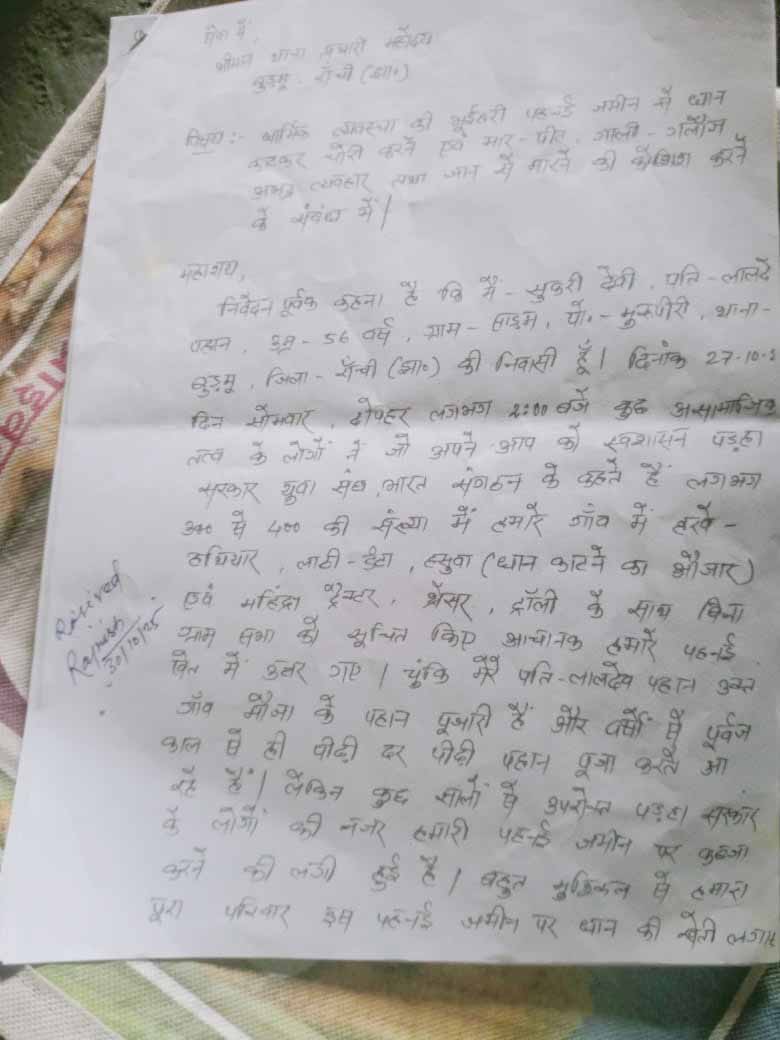 सेवा में,
श्रीमान थाना प्रभारी महोदय
बुड़मू, राँची (झा०)
विषय:- धार्मिक व्यवस्था की भूईहरी पहनई जमीन से धान
काटकर चोरी करने एवं मार-पीट, गाली-गलौज
अभद्र व्यवहार तथा जान से मारने की कोशिश करने
के संबंध में|
महाशय,
निवेदन पूर्वक कहना है कि मैं - सुकरी देवी, पति - लालदेव
पहान, उम्र - 56 वर्ष, ग्राम - साड़म, पो.- मुरुपीरी, थाना -
बुड़मू, जिला - राँची (झा०) की निवासी हूँ| दिनांक 27.10.2
दिन सोमवार, दोपहर लगभग 2:00 बजे कुछ असामाजिक
तत्व के लोगों ने जो अपने आप को स्वशासन पड़हा
सरकार युवा संघ, भारत संगठन के कहते हैं लगभग
300 से 400 की संख्या में हमारे गाँव में हरवे -
हथियार, लाठी-डंटा, हसुवा (धान काटने का औजार)
एवं महिंद्रा ट्रैक्टर, थ्रेसर, ट्रॉली के साथ बिना
ग्राम सभा को सूचित किए आचानक हमारे पहनई
खेत में उतर गए| चूंकि मेरे पति - लालदेव पहान उक्त
गाँव मौजा के पहान पूजारी हैं और वर्षों से पूर्वज
काल से ही पीढ़ी दर पीढ़ी पहान पूजा करते आ
रहे हैं| लेकिन कुछ सालों से उपरोक्त पड़हा सरकार
के लोगों की नजर हमारी पहनई जमीन पर कब्जा
करने की लगी हुई है| बहुत मुश्किल से हमारा
पूरा परिवार इस पहनई जमीन पर धान की खेती लगाए
Received
Rajnish
30/10/25